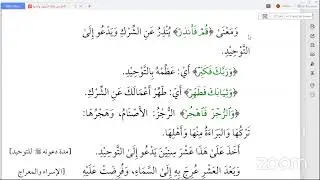 وَمَعْنَى ﴿قُمْ فَأَنذِرْ﴾ يُنْذِرُ عَنِ الشِّرْكِ وَيَدْعُو إِلَى
التَّوْحِيدِ.
﴿وَرَبَّكَ فَكَبِّرْ﴾ أَيْ: عَظِّمْهُ بِالتَّوْحِيدِ.
﴿وَثِيَابَكَ فَطَهِّرْ﴾ أَيْ: طَهِّرْ أَعْمَالَكَ عَنِ الشِّرْكِ.
﴿وَالرُّجْزَ فَاهْجُرْ﴾ الرُّجْزُ: الأَصْنَامُ، وَهَجْرُهَا:
تَرْكُهَا وَالبَرَاءَةُ مِنْهَا وَأَهْلِهَا.
أَخَذَ عَلَى هَذَا عَشْرَ سِنِينَ يَدْعُو إِلَى التَّوْحِيدِ. [مدة دعوته ﷺ للتوحيد]
وَبَعْدَ العَشْرِ عُرِجَ بِهِ إِلَى السَّمَاءِ، وَفُرِضَتْ عَلَيْهِ [الإسراء والمعراج
zoom